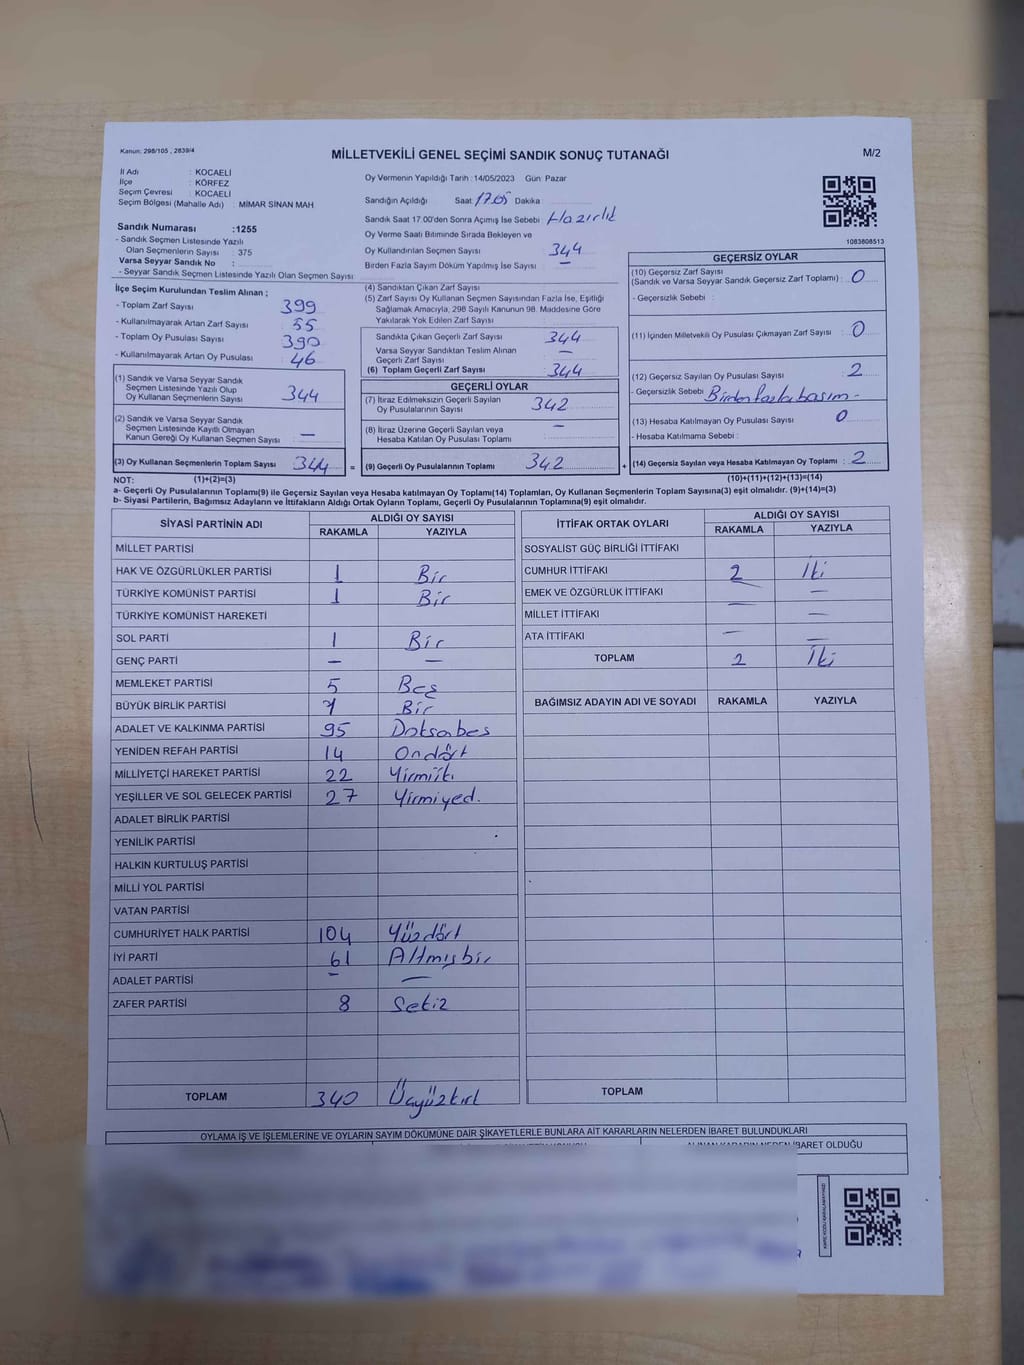 Kanun: 298/105 , 2839/4
MİLLETVEKİLİ GENEL SEÇİMİ SANDIK SONUÇ TUTANAĞI
M/2
İl Adı : KOCAELİ
İlçe : KÖRFEZ
Seçim Çevresi : KOCAELİ
Seçim Bölgesi (Mahalle Adı) : MİMAR SİNAN MAH.
Sandık Numarası :1255
- Sandık Seçmen Listesinde Yazılı
Olan Seçmenlerin Sayısı : 375
Varsa Seyyar Sandık No :
- Seyyar Sandık Seçmen Listesinde Yazılı Olan Seçmen Sayısı:
Oy Vermenin Yapıldığı Tarih : 14/05/2023 Gün: Pazar
Sandığın Açıldığı Saat: 17.05 Dakika
Sandık Saat 17.00'den Sonra Açımış İse Sebebi : Hazırlık
Oy Verme Saati Bitiminde Sırada Bekleyen ve
Oy Kullandırılan Seçmen Sayısı 344
Birden Fazla Sayım Döküm Yapılmış İse Sayısı —
1083808513
İlçe Seçim Kurulundan Teslim Alınan ;
- Toplam Zarf Sayısı 399
- Kullanılmayarak Artan Zarf Sayısı : 55
- Toplam Oy Pusulası Sayısı 390
- Kullanılmayarak Artan Oy Pusulası : 46
(1) Sandık ve Varsa Seyyar Sandık
Seçmen Listesinde Yazılı Olup
Oy Kullanan Seçmenlerin Sayısı 344
(2) Sandık ve Varsa Seyyar Sandık
Seçmen Listesinde Kayıtlı Olmayan
Kanun Gereği Oy Kullanan Seçmen Sayısı : —
(3) Oy Kullanan Seçmenlerin Toplam Sayısı 344 =
(4) Sandıktan Çıkan Zarf Sayısı :
(5) Zarf Sayısı Oy Kullanan Seçmen Sayısından Fazla İse, Eşitliği
Sağlamak Amacıyla, 298 Sayılı Kanunun 98. Maddesine Göre
Yakılarak Yok Edilen Zarf Sayısı :
Sandıkta Çıkan Geçerli Zarf Sayısı 344
Varsa Seyyar Sandıktan Teslim Alınan
Geçerli Zarf Sayısı —
(6) Toplam Geçerli Zarf Sayısı : 344
GEÇERLİ OYLAR
(7) İtiraz Edilmeksizin Geçerli Sayılan
Oy Pusulalarının Sayısı : 342
(8) İtiraz Üzerine Geçerli Sayılan veya
Hesaba Katılan Oy Pusulası Toplamı : —
(9) Geçerli Oy Pusulalarının Toplamı 342 +
GEÇERSİZ OYLAR
(10) Geçersiz Zarf Sayısı
(Sandık ve Varsa Seyyar Sandık Geçersiz Zarf Toplamı) : 0
- Geçersizlik Sebebi :
(11) İçinden Milletvekili Oy Pusulası Çıkmayan Zarf Sayısı : 0
(12) Geçersiz Sayılan Oy Pusulası Sayısı : 2
- Geçersizlik Sebebi : Birden fazla basım -
(13) Hesaba Katılmayan Oy Pusulası Sayısı : 0
- Hesaba Katılmama Sebebi :
(14) Geçersiz Sayılan veya Hesaba Katılmayan Oy Toplamı : 2
NOT: (1)+(2)=(3) (10)+(11)+(12)+(13)=(14)
a- Geçerli Oy Pusulalarının Toplamı(9) ile Geçersiz Sayılan veya Hesaba katılmayan Oy Toplamı(14) Toplamları, Oy Kullanan Seçmenlerin Toplam Sayısına(3) eşit olmalıdır. (9)+(14)=(3)
b- Siyasi Partilerin, Bağımsız Adayların ve İttifakların Aldığı Ortak Oyların Toplamı, Geçerli Oy Pusulalarının Toplamına(9) eşit olmalıdır.
SİYASİ PARTİNİN ADI ALDIĞI OY SAYISI
RAKAMLA YAZIYLA
MİLLET PARTİSİ
HAK VE ÖZGÜRLÜKLER PARTİSİ 1 Bir
TÜRKİYE KOMÜNİST PARTİSİ 1 Bir
TÜRKİYE KOMÜNİST HAREKETİ
SOL PARTİ 1 Bir
GENÇ PARTİ — —
MEMLEKET PARTİSİ 5 Beş
BÜYÜK BİRLİK PARTİSİ 1 Bir
ADALET VE KALKINMA PARTİSİ 95 Doksanbeş
YENİDEN REFAH PARTİSİ 14 Ondört
MİLLİYETÇİ HAREKET PARTİSİ 22 Yirmiiki
YEŞİLLER VE SOL GELECEK PARTİSİ 27 Yirmiyed.
ADALET BİRLİK PARTİSİ
YENİLİK PARTİSİ
HALKIN KURTULUŞ PARTİSİ
MİLLİ YOL PARTİSİ
VATAN PARTİSİ
CUMHURİYET HALK PARTİSİ 104 Yüzdört
İYİ PARTİ 61 Altmışbir
ADALET PARTİSİ — —
ZAFER PARTİSİ 8 Sekiz
TOPLAM 340 Üçyüzkırk
İTTİFAK ORTAK OYLARI ALDIĞI OY SAYISI
RAKAMLA YAZIYLA
SOSYALİST GÜÇ BİRLİĞİ İTTİFAKI
CUMHUR İTTİFAKI 2 İki
EMEK VE ÖZGÜRLÜK İTTİFAKI — —
MİLLET İTTİFAKI — —
ATA İTTİFAKI — —
TOPLAM 2 İki
BAĞIMSIZ ADAYIN ADI VE SOYADI RAKAMLA YAZIYLA
TOPLAM
OYLAMA İŞ VE İŞLEMLERİNE VE OYLARIN SAYIM DÖKÜMÜNE DAİR ŞİKAYETLERLE BUNLARA AİT KARARLARIN NELERDEN İBARET BULUNDUKLARI
ALINAN KARARIN NEDEN İBARET OLDUĞU